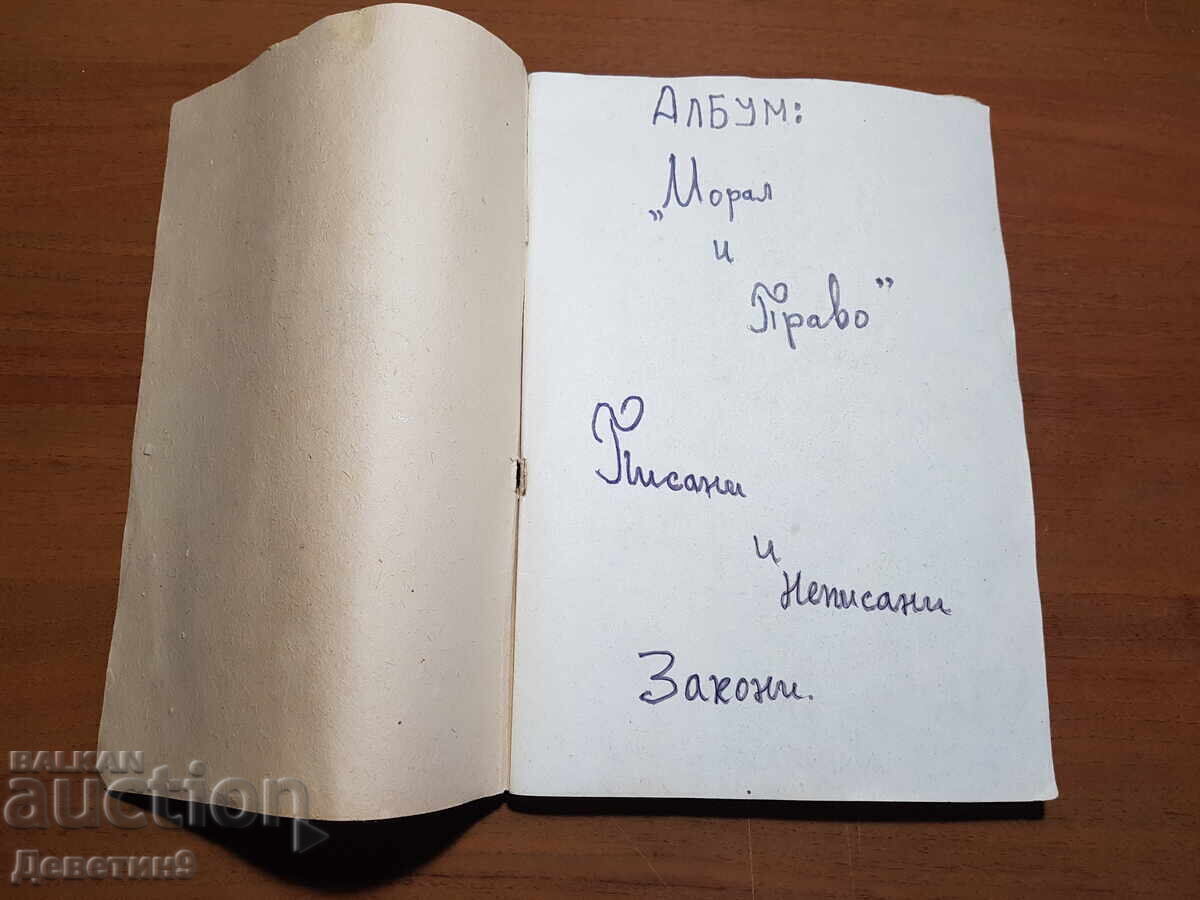 АЛБУМ:
„Морал
и
Право”
Писани
и
Неписани
Закони.
BALKAN
auction
Деветин9